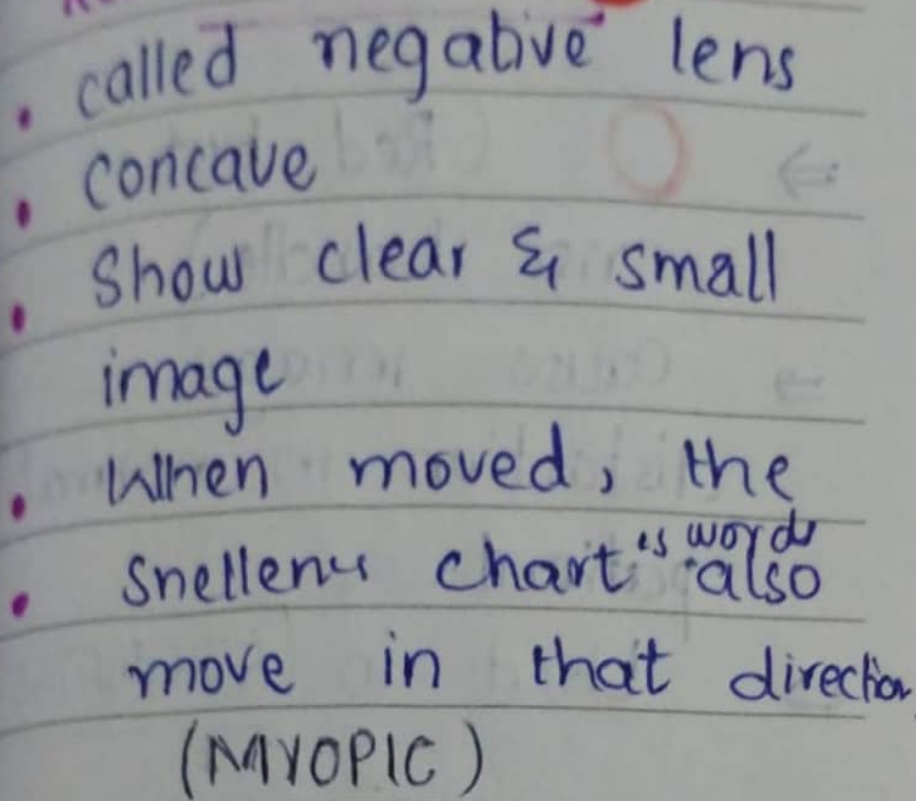 • called negative lens
• concave
• Show clear & small
image
• When moved, the
• Snellens chart's words also
move in that direction
(MYOPIC)